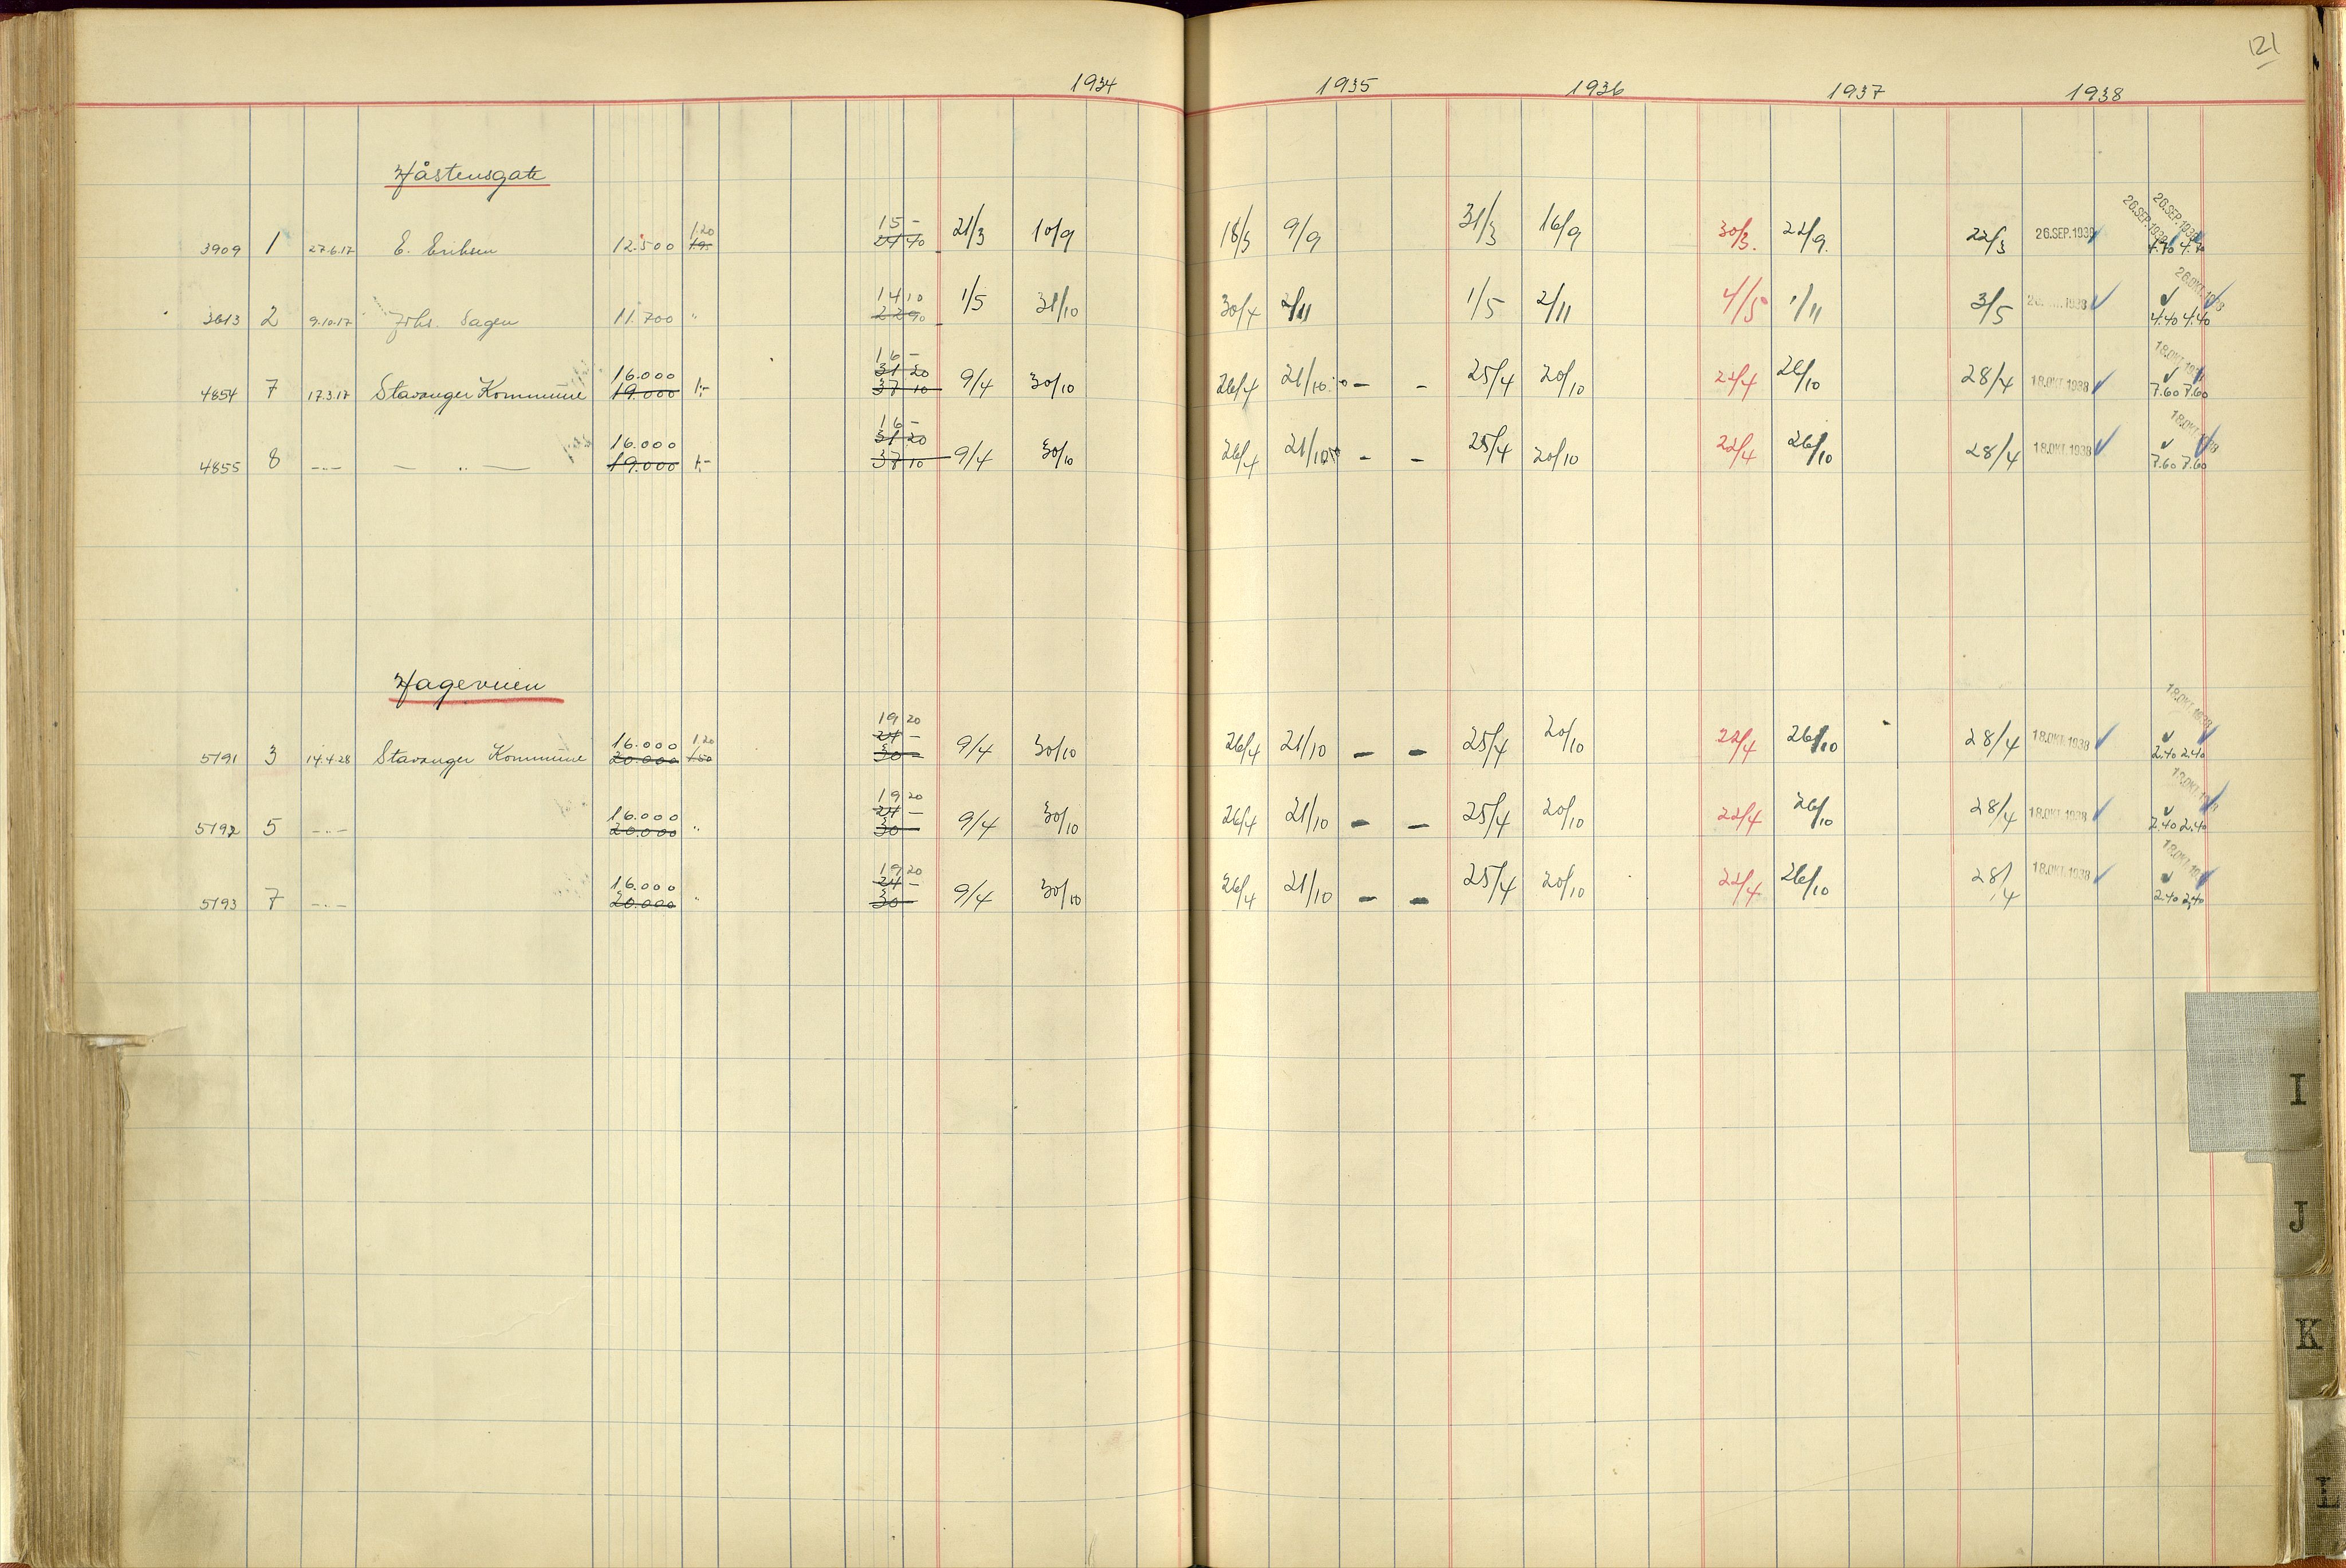 121
1934 1935 1936 1937 1938
Håstensgate
15 - 1.20
3909 1 27.6.17 E. Eriksen 12.500 24 40 21/3 10/9 18/3 9/9 31/3 16/9 30/3. 22/9. 22/3 26.SEP.1938 26.SEP.1938 26.SEP.1938 4.70 4.70
14 10
3613 2 9.10.17 Johs. Sagen 11.700 " 22 90 1/5 31/10 30/4 2/11 1/5 2/11 4/5 1/11 3/5 26.OKT.1938 4.40 4.40
16.000 16 -
31 20
4854 7 17.3.17 Stavanger Kommune 19.000 1.- 37 10 9/4 30/10 26/4 21/10 - - 25/4 20/10 22/4 26/10 28/4 18.OKT.1938 18.OKT.1938 7.60 7.60
16.000 16 -
31 20
4855 8 -"- - " - 19.000 1.- 37 10 9/4 30/10 26/4 21/10 - - 25/4 20/10 22/4 26/10 28/4 18.OKT.1938 18.OKT.1938 7.60 7.60
Hageveien
16.000 1.20 19 20
24 -
5191 3 14.4.28 Stavanger Kommune 20.000 1.50 30 - 9/4 30/10 26/4 21/10 - - 25/4 20/10 22/4 26/10 28/4 18.OKT.1938 18.OKT.1938 2.40 2.40
16.000 19 20
24 -
5192 5 -"- 20.000 " 30 - 9/4 30/10 26/4 21/10 - - 25/4 20/10 22/4 26/10 28/4 18.OKT.1938 18.OKT.1938 2.40 2.40
16.000 19 20
24 -
5193 7 -"- 20.000 " 30 - 9/4 30/10 26/4 21/10 - - 25/4 20/10 22/4 26/10 28/4 18.OKT.1938 18.OKT.1938 2.40 2.40
I
J
K
L